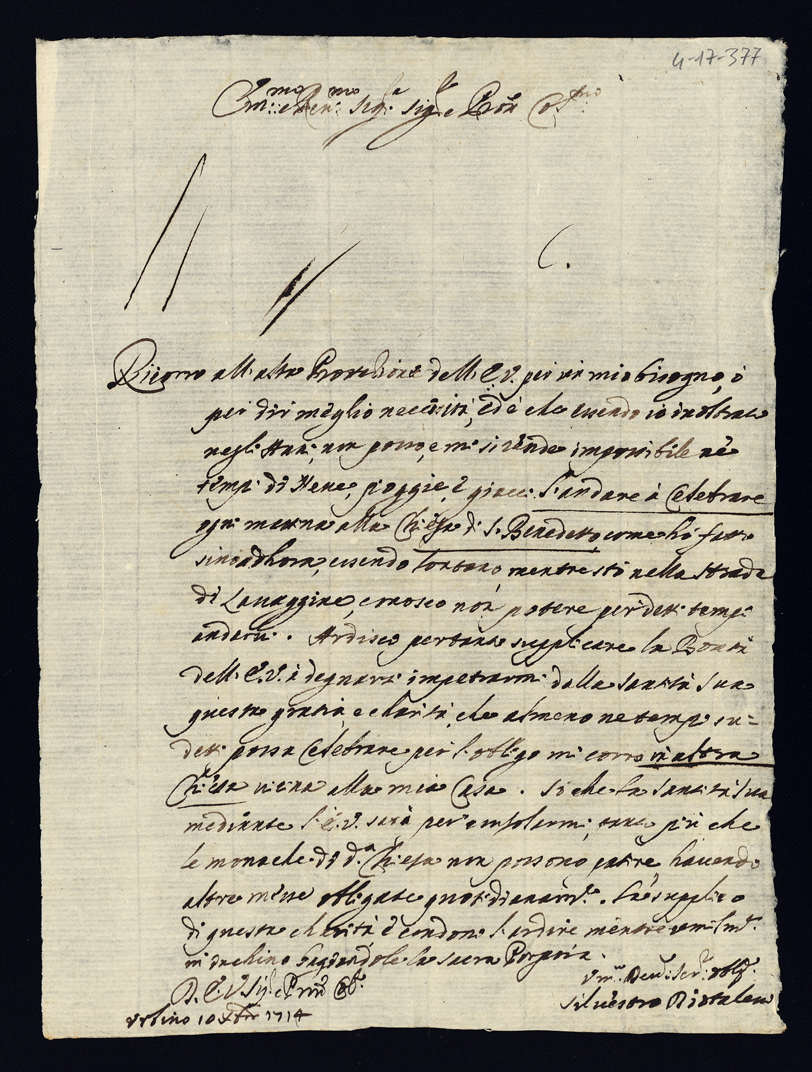 4-17-377
Em:mo e Ren:mo Sig:r Sig:r e Pron
Ricorro all'alta Protezione dell'E.V. per un mio bisogno, ò
per dir meglio necessità, ed è che essendo io inoltrato
negli Anni, non posso, e mi si rende impossibile ne
tempi di Neve, pioggie, e giacci l'andare à Celebrare
ogni matina alla Chiesa di S. Benedetto come hò fatto
sino adhora, essendo lontano, mentre stò nella Strada
di Lavaggine, conosco non potere per detti tempi
andarvi. Ardisco pertanto supplicare la Bontà
dell'E.V. à degnarsi impetrarmi dalla Santità Sua
questa gratia, e charità, che almeno ne tempi su=
detti possa Celebrare per l'obligo mi corre in altra
Chiesa vicina alla mia Casa. Si che la Santità Sua
mediante l'E.V. sarà per consolarmi, tanto più che
le monache di d.a Chiesa non possono patire havendo
altre messe obligate quotidianam.te. La supplico
di questa charità è condoni l'ardire mentre umilm.te
m'inchino bagiandole la sacra Porpora.
D. E.V. Sig.e Pron
Um.o Dev.o Ser.e obl.o
Urbino 10 Xbre 1714
Silvestro